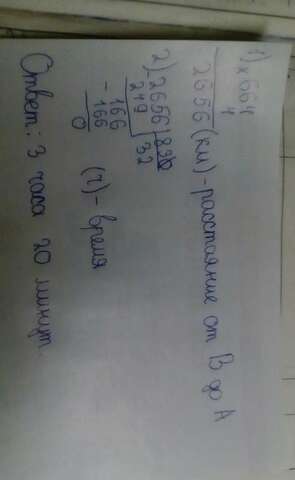 1) × 664
4
2656 (км) - расстаяние от В до А
2) - 2656 | 830
249 | 32
- 166
166
0 (ч) - время
Ответ: 3 часа 20 минут.